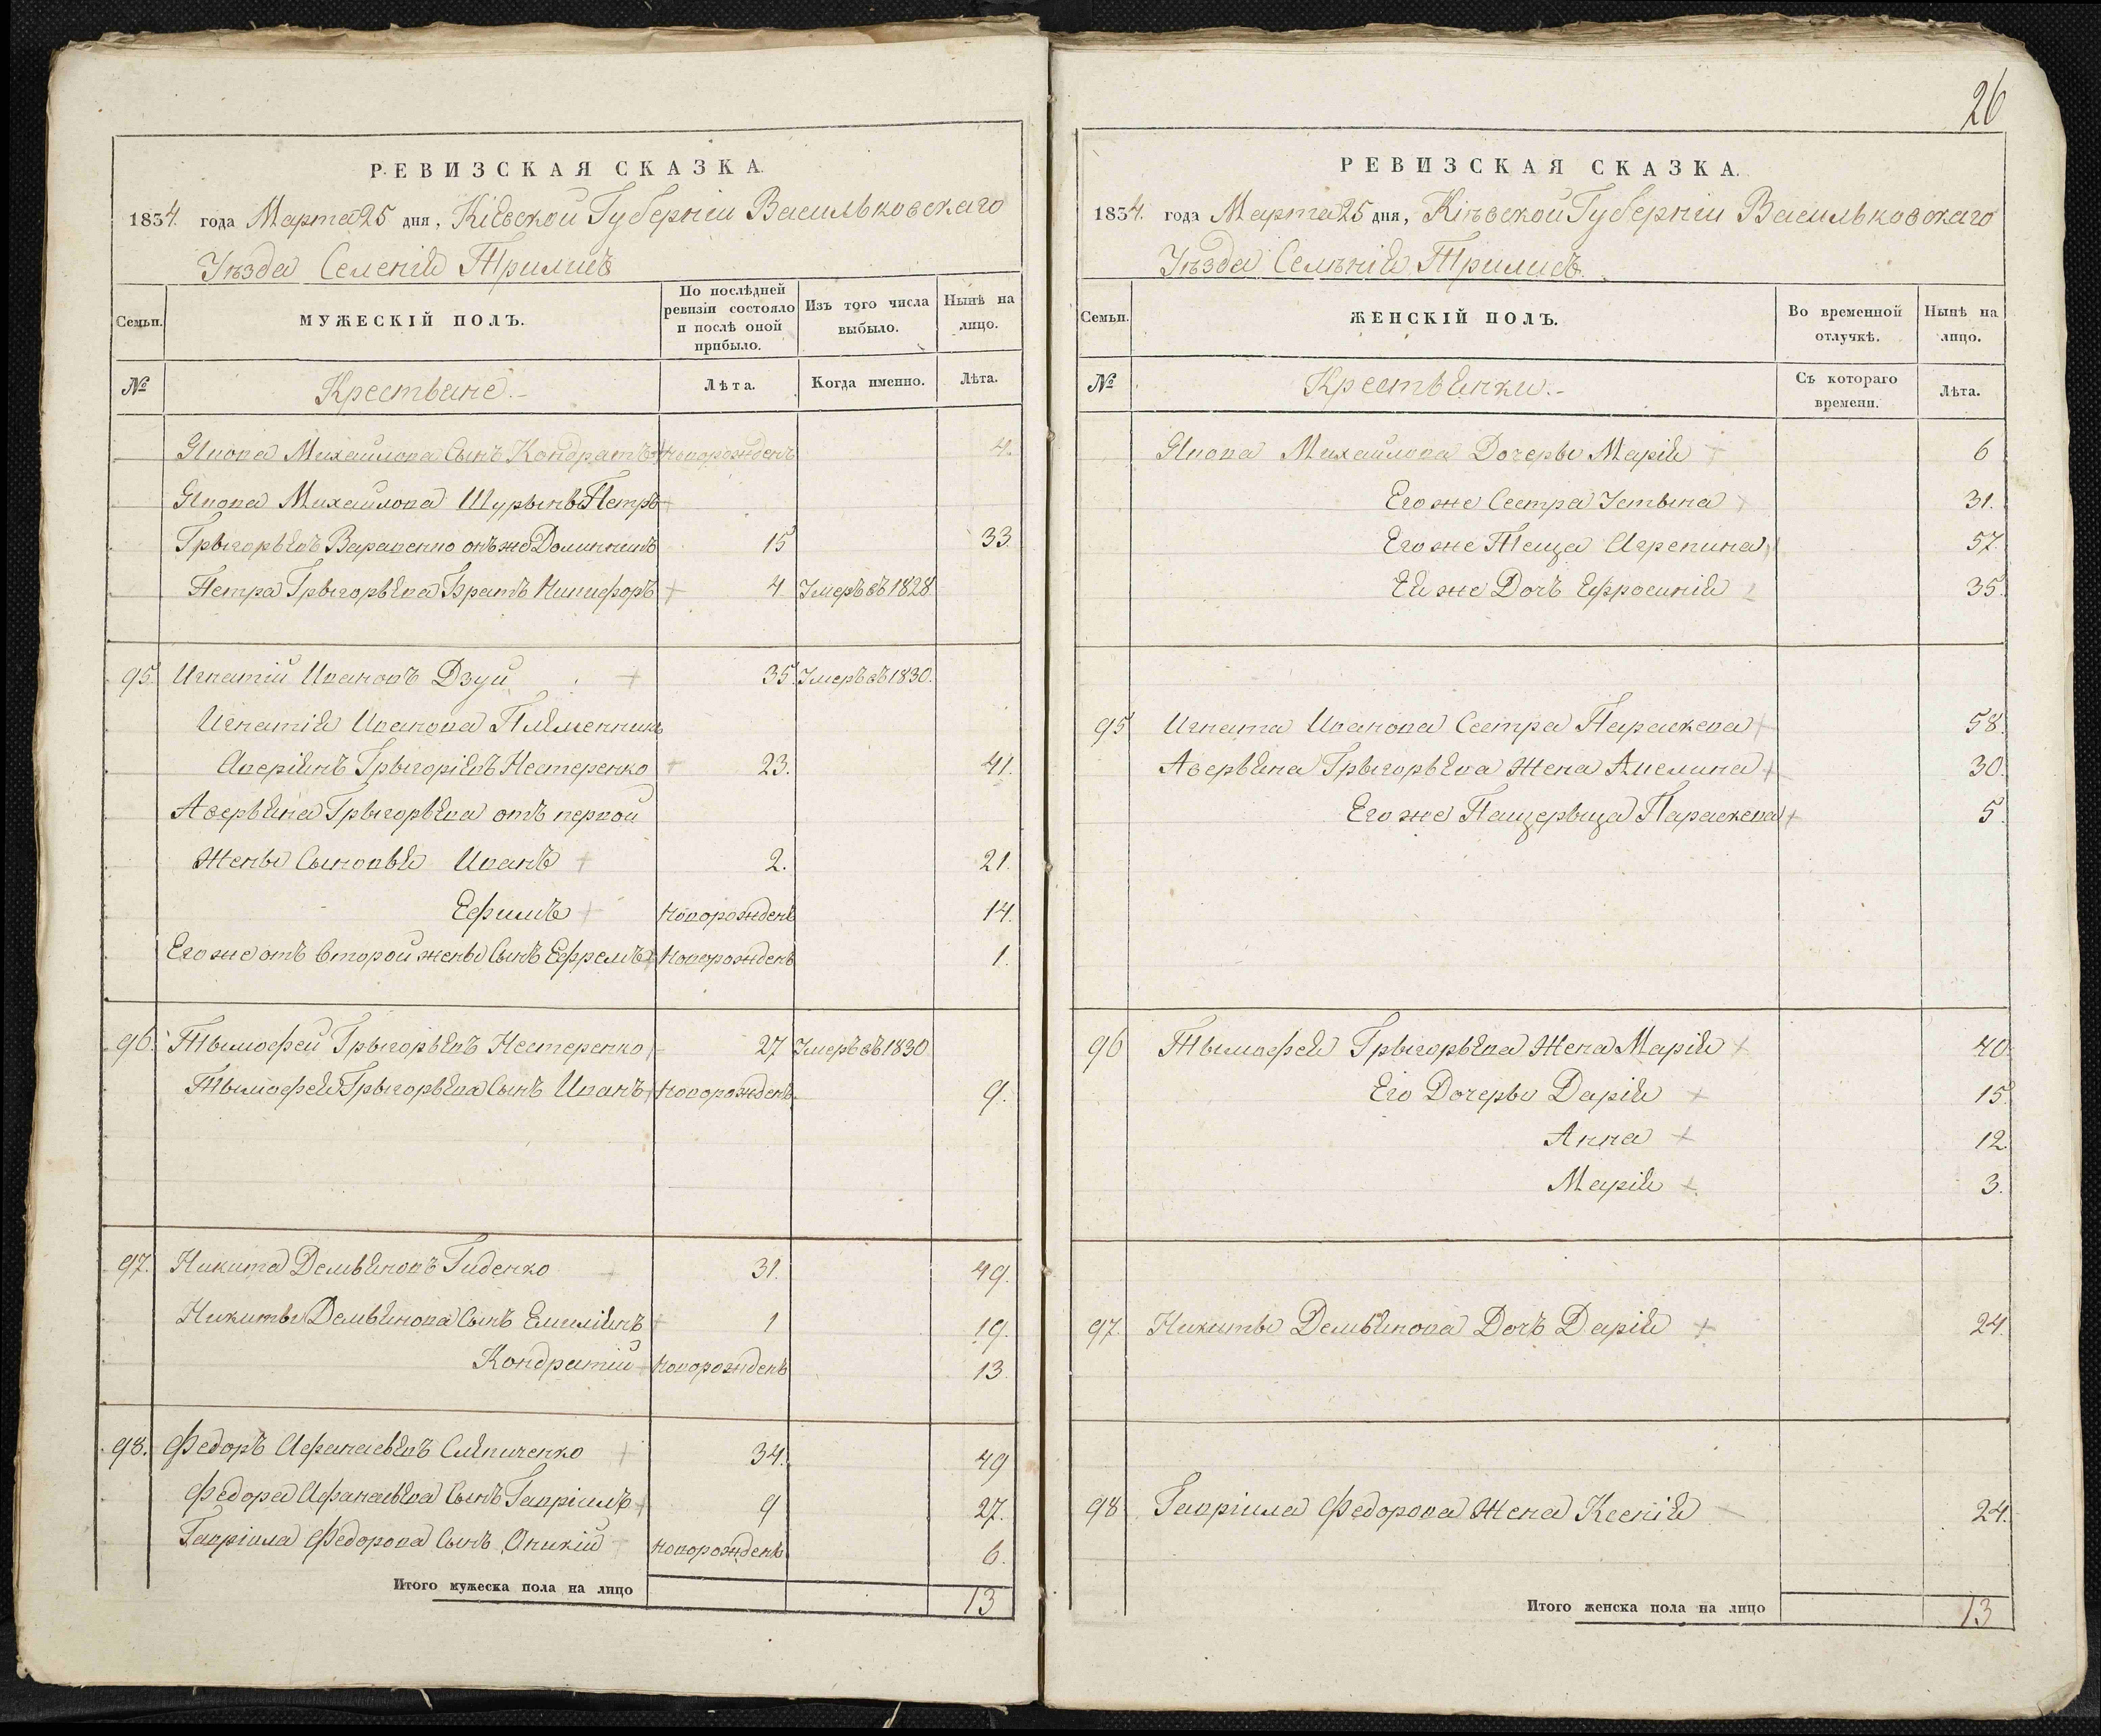 26
РЕВИЗСКАЯ СКАЗКА.
1834. года Марта 25 дня, Кіевской Губерніи Васильковскаго
Уѣзда Селенія Трилисъ
Семьи.
МУЖЕСКІЙ ПОЛЪ.
По послѣдней ревизіи состояло и послѣ оной прибыло.
Изъ того числа выбыло.
Нынѣ на лицо.
№
Крестьяне.
Лѣта.
Когда именно.
Лѣта.
Якова Михайлова Сынъ Кондратъ новорожденъ 4.
Якова Михайлова Шурынъ Петръ
Грыгорьевъ онъ же 15 33
Петра Грыгорьева Братъ Никифоръ 4 Умеръ въ 1828
95 Игнатій Ивановъ Дзуй 35. Умеръ въ 1830.
Игнатія Иванова Племенникъ
Аверіянъ Грыгоріевъ Нестеренко 23. 41.
Аверьяна Грыгорьева отъ первой
Жены Сыновья Иванъ 2. 21.
Ефимъ новорожденъ 14.
Его же отъ второй жены Сынъ Ефремъ Новорожденъ 1.
96. Тымофей Грыгорьевъ Нестеренко 27 Умеръ въ 1830
Тымофея Грыгорьева Сынъ Иванъ Новорожденъ 9.
97. Никита Демьяновъ Гиденко 31. 49.
Никиты Демьянова Сынъ Емиліянъ 1 19.
Кондратій новорожденъ 13
98. Федоръ Афанасьевъ Слѣпиченко 34. 49
Федора Афанасьева Сынъ Гавріилъ 9 27.
Гавріила Федорова Сынъ Оникій новорожденъ 6.
Итого мужеска пола на лицо 13
РЕВИЗСКАЯ СКАЗКА.
1834. года Марта 25 дня, Кіевской Губерніи Васильковскаго
Уѣзда Селѣнія Трилисъ.
Семьи.
ЖЕНСКІЙ ПОЛЪ.
Во временной отлучкѣ.
Нынѣ на лицо.
№
Крестьянки.
Съ котораго времени.
Лѣта.
Якова Михайлова Дочеры Марія 6
Его же Сестра Устына 31.
Его же Теща Агрепина 57.
Ея же Дочъ Ефросинія 35.
95 Игната Иванова Сестра Параскева 58.
Аверьяна Грыгорьева Жена Акелина 30.
Его же Пащерыца Параскева 5
96 Тымофея Грыгорьева Жена Марія 40
Его Дочеры Дарія 15.
Анна 12
Марія 3.
97. Никиты Демьянова Дочъ Дарія 24.
98 Гавріила Федорова Жена Ксенія 24.
Итого женска пола на лицо 13